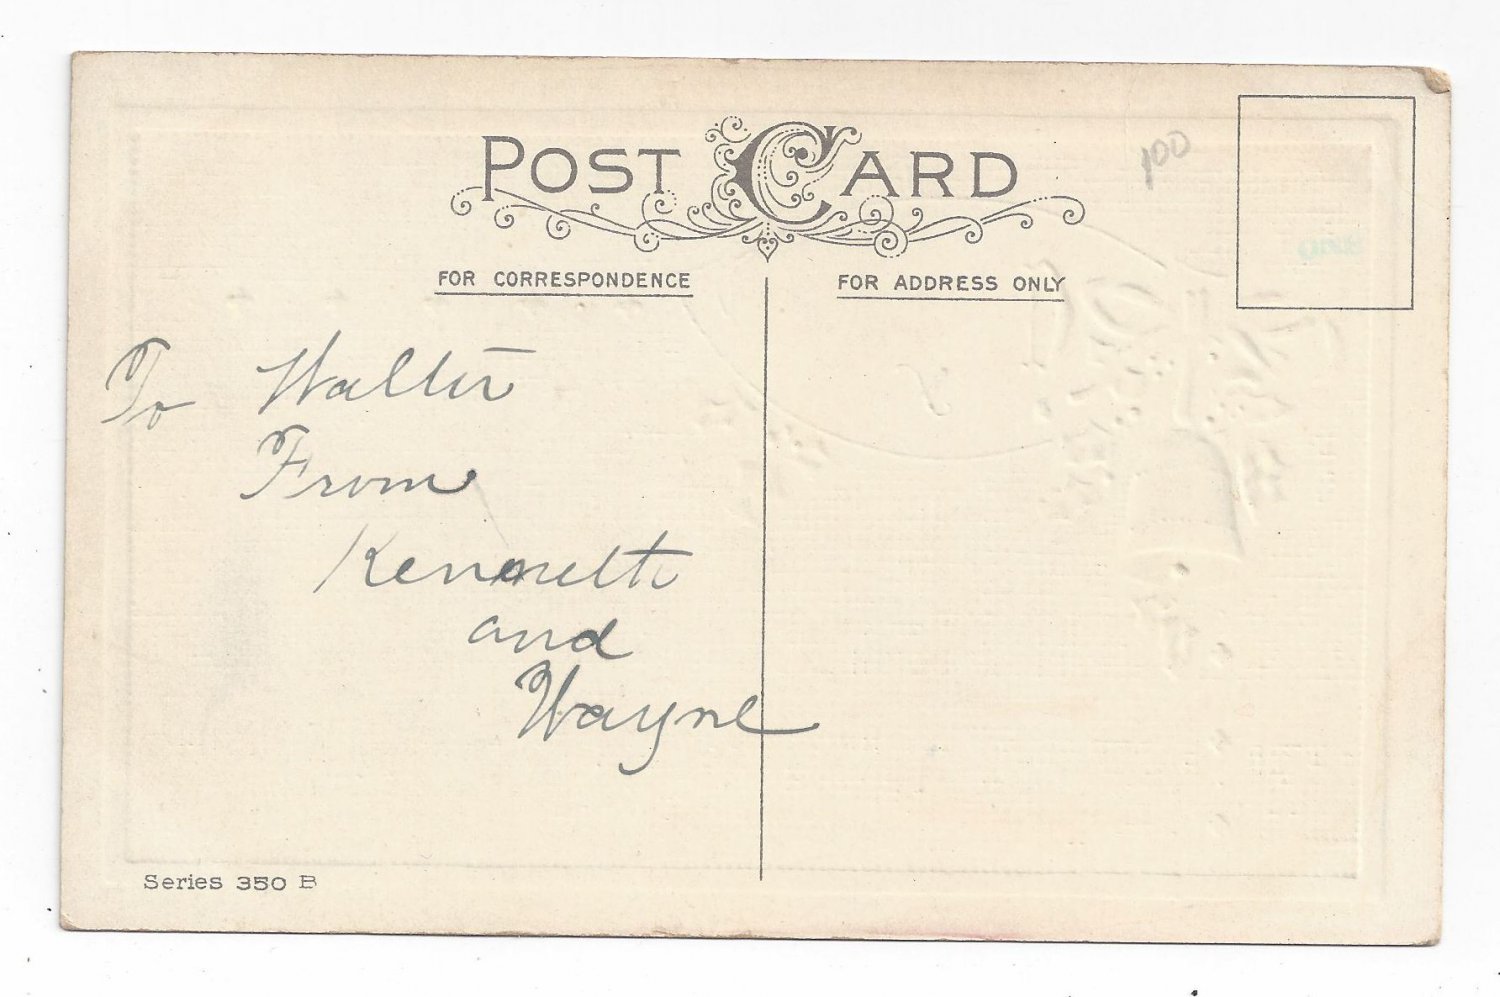 POST CARD
100
FOR CORRESPONDENCE
FOR ADDRESS ONLY
To Walter
From
Kenneth
and
Wayne
Series 350 B